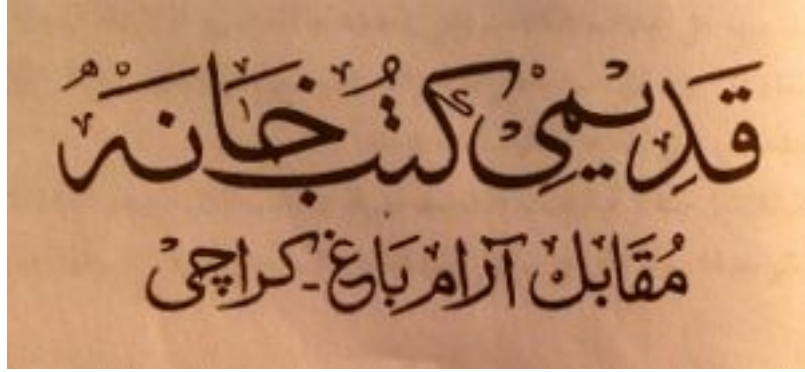 قَدِيمِيْ كُتُبْ خَانَهْ
مُقَابِلْ آرَامْ بَاغْ - كراچِیْ